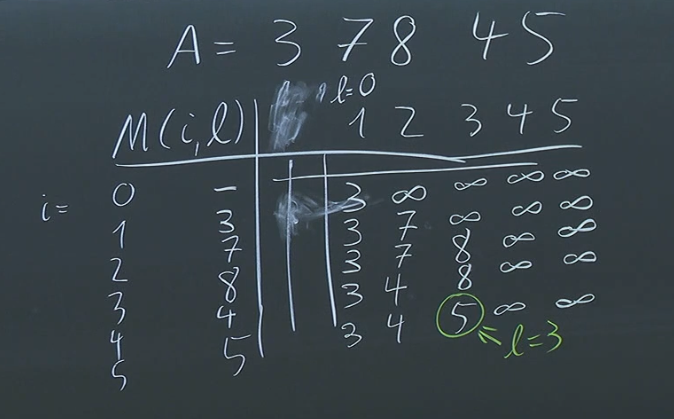 A = 3 7 8 4 5
l=0
M(i,l) 1 2 3 4 5
i= 0 - 3 ∞ ∞ ∞ ∞
1 3 3 7 ∞ ∞ ∞
2 7 3 7 8 ∞ ∞
3 8 3 4 8 ∞ ∞
4 4 3 4 5 ∞ ∞
5 5
l=3